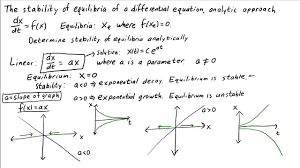 The stability of equilibria of a differential equation, analytic approach
dx/dt = f(x) Equilibria: Xₑ where f(xₑ)=0.
Determine stability of equilibria analytically
Solution: X(t)=Ce^{at}
Linear: dx/dt = ax where a is a parameter a≠0
Equilibrium: X=0
Stability: a<0 ⇒ exponential decay. Equilibrium is stable
a>0 ⇒ exponential growth. Equilibrium is unstable
a=slope of graph
f(x)=ax
a<0
x
t
a>0
x
t